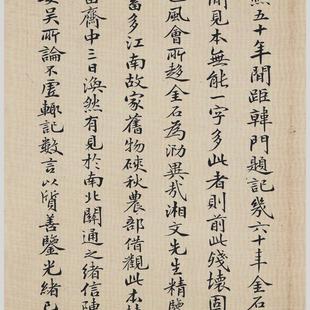 熙五十年間距韓門題記幾六十年金石
聞見本無能一字多此者則前此殘壞固
風會所趨金石為勝異哉湘文先生精鑒
富多江南故家舊物硤秋農部借觀此本
留齋中三日渙然有見於南北關通之緒信陳
吳所論不虛輒記數言以質善鑒光緒己